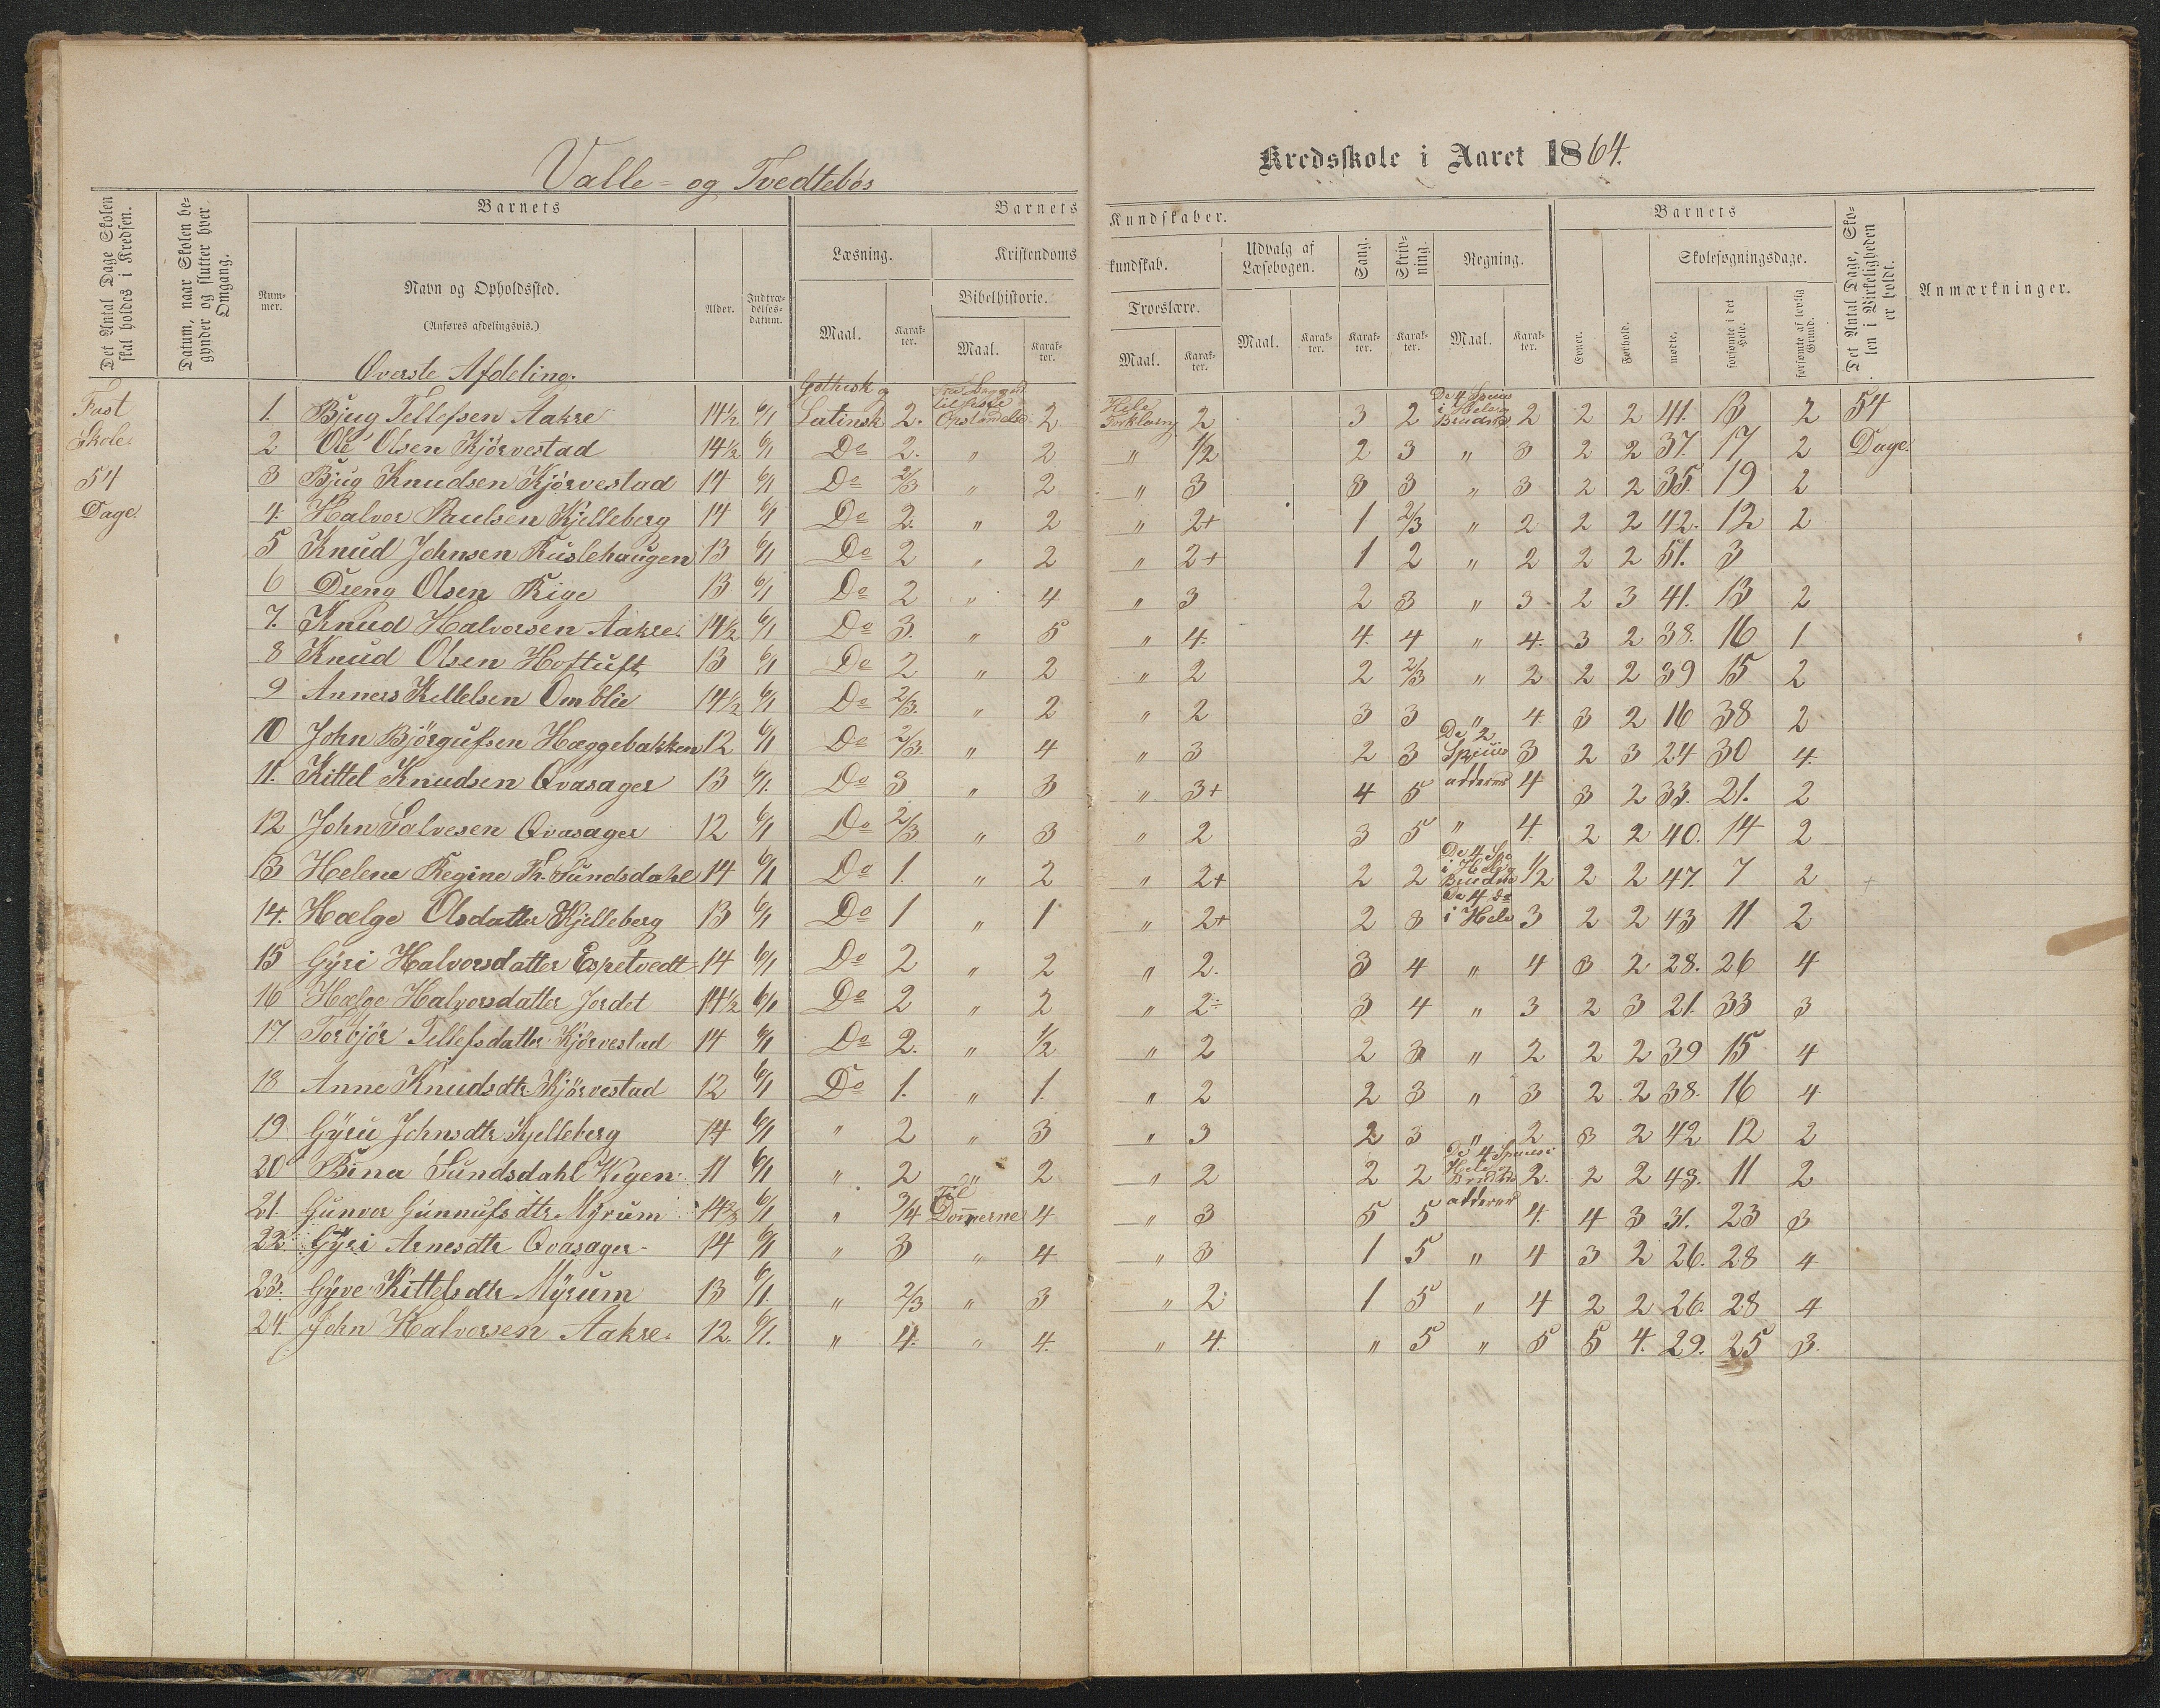 Valle- og Tvedtebøs Kredsskole i Aaret 1864.
Det Antal Dage Skolen skal holdes i Kredsen.
Datum, naar Skolen begynder og slutter hver Omgang.
Barnets
Nummer.
Navn og Opholdssted.
(Anføres afdelingsvis.)
Alder.
Indtrædelsesdatum.
Barnets Kundskaber.
Læsning.
Maal.
Karakter.
Kristendomskundskab.
Bibelhistorie.
Maal.
Karakter.
Troeslære.
Maal.
Karakter.
Udvalg af Læsebogen.
Maal.
Karakter.
Sang.
Karakter.
Skrivning.
Karakter.
Regning.
Maal.
Karakter.
Barnets
Evner.
Forhold.
Skolesøgningsdage.
mødte.
forsømte i det Hele.
forsømte af lovlig Grund.
Det Antal Dage, Skolen i Virkeligheden er holdt.
Anmærkninger.
Overste Afdeling.
Fast Skole 54 Dage.
1. Bjug Tellefsen Aakre 14½ 6/1 Gothisk og Latinsk 2. 2 Hele Forklaring 2 3 2 De 4 Species i Hele og Brudne 2 2 2 41. 13 2 54 Dage.
2 Ole Olsen Kjörvestad 14½ 6/1 Do 2. " 2 " ½ 2 3 " 3 2 2 37. 17 2
3 Bjug Knudsen Kjörvestad 14 6/1 Do 2/3 " 2 " 3 3 3 " 3 2 2 35. 19 2
4. Halvor Paulsen Kjelleberg 14 6/1 Do 2. " 2 " 2+ 1 2/3 " 2 2 2 42. 12 2
5 Knud Johnsen Rüslehaugen 13 6/1 Do 2 " 2 " 2+ 1 2 " 2 2 2 51. 3
6 Dreng Olsen Rige 13 6/1 Do 2 " 4 " 3 2 3 " 3 2 3 41. 13 2
7. Knud Halvorsen Aakre. 14½ 6/1 Do 3. " 5 " 4. 4. 4 " 4. 3 2 38. 16 1
8 Knud Olsen Hoftuft 13 6/1 Do 2 " 2 " 2 2 2/3 " 2 2 2 39 15 2
9 Anners Kittelsen Omblie 14½ 6/1 Do 2/3. " 2 " 2 3 3 " 4 3 2 16 38 2
10 John Björgufsen Hæggebakken 12 6/1 Do 2/3. " 4 " 3 2 3 De 2 Species 3 2 3 24 30 4.
11. Kittel Knudsen Qvasager 13 6/1. Do 3 " 3 " 3+ 4 5 adderer 4 3 2 33. 21. 2
12 John Salvesen Qvasager 12 6/1 Do 2/3 " 3 " 2 3 5 " 4. 2 2 40. 14 2
13 Helene Regine Th. Sundsdahl 14 6/1 Do 1. " 2 " 2+ 2 2 De 4 Sp. i Hele og Brudne ½ 2 2 47. 7 2
14. Hælge Olsdatter Kjelleberg 13 6/1 Do 1 " 1 " 2+ 2 3 De 4 do i Hele 3 2 2 43 11 2
15 Gÿri Halvorsdatter Espetvedt 14 6/1 Do 2 " 2 " 2. 3 4 " 4 3 2 28. 26 4
16 Hælge Halvorsdatter Jordet 14½ 6/1 Do 2 " 2 " 2÷ 3 4 " 3 2 3 21. 33 3
17. Torbjör Tellefsdatter Kjörvestad 14 6/1 Do 2. " ½ " 2 2 3 " 2 2 2 39 15 4
18 Anne Knudsdtr Kjörvestad 12 6/1 Do 1. " 1. " 2 2 3 " 3 2 2 38. 16 4
19 Gÿru Johnsdtr Kjelleberg 14 6/1 " 2 " 3 " 3 2 3 " 2 3 2 42 12 2
20 Bina Sundsdahl Vigen 11 6/1 " 2 " 2 " 2 2 2 De 4 Species i Hele og Brudne 2. 2 2 43. 11 2
21. Gunvor Gunnufsdtr Mÿrum 6/1 " 3/4 Til Dommerne 4 " 3 5 5 adderer 4. 4 3 31. 23 3
22 Gÿri Arnesdtr Qvasager 14 6/1 " 3 " 4 " 3 1 5 " 4 3 2 26. 28 4
23. Gÿve Kittelsdtr Mÿrum 13 6/1. " 2/3 " 3 " 2. 1 5 " 4 2 2 26. 28 4
24. John Halvorsen Aakre. 12. 6/1. " 4. " 4. " 4. " 5 " 5 5 4. 29. 25 3.